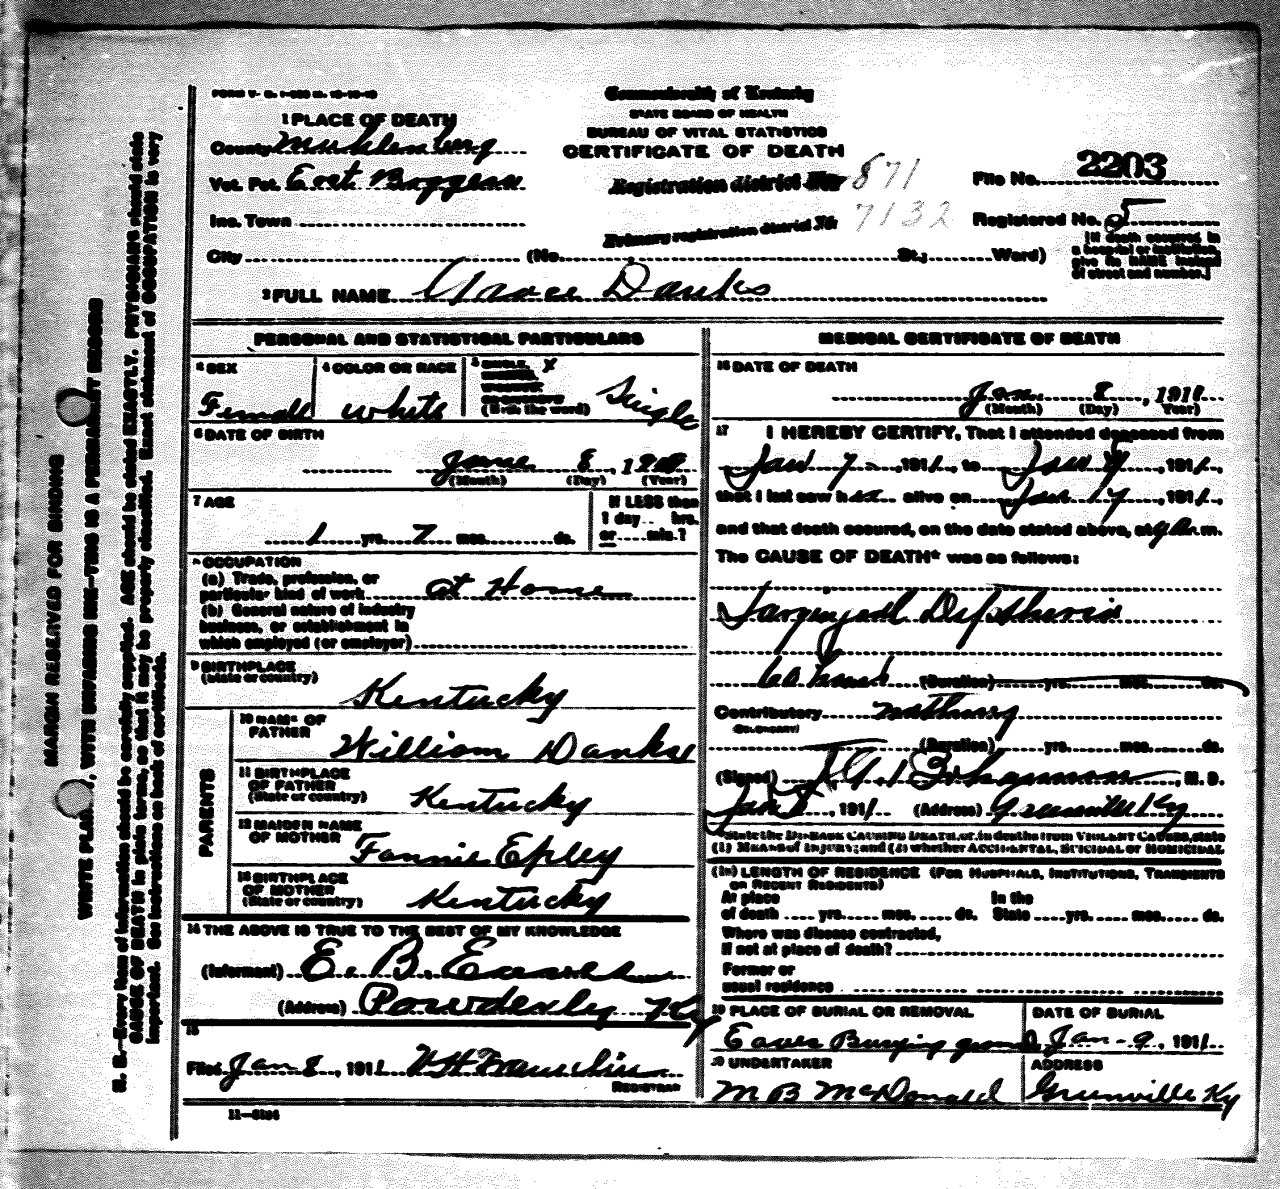 FORM V- S. 1-
Commonwealth of Kentucky
STATE BOARD OF HEALTH
BUREAU OF VITAL STATISTICS
CERTIFICATE OF DEATH
1 PLACE OF DEATH
County Muhlenberg
Vot. Pct. East
Inc. Town
City (No. St.; Ward)
Registration district No. 871
Primary registration district No. 7132
File No. 2203
Registered No. 5
[If death occurred in
a hospital or institution,
give its NAME instead
of street and number.]
2 FULL NAME Grace Danks
PERSONAL AND STATISTICAL PARTICULARS
3 SEX
Female
4 COLOR OR RACE
White
5 SINGLE, X
(Write the word) Single
6 DATE OF BIRTH
June 8, 19
(Month) (Day) (Year)
7 AGE
1 yrs. 7 mos. ds.
If LESS than
1 day .. hrs.
or .... min.?
OCCUPATION
(a) Trade, profession, or
particular kind of work at Home
(b) General nature of industry
business, or establishment in
which employed (or employer)
9 BIRTHPLACE
(State or country)
Kentucky
PARENTS
10 NAME OF
FATHER
William Danks
11 BIRTHPLACE
OF FATHER
(State or country) Kentucky
12 MAIDEN NAME
OF MOTHER
Fannie Epley
13 BIRTHPLACE
OF MOTHER
(State or country) Kentucky
14 THE ABOVE IS TRUE TO THE BEST OF MY KNOWLEDGE
(Informant) E. B. Eaves
(Address) Powderly Ky
15
Filed Jan 8, 1911
REGISTRAR
11-
MEDICAL CERTIFICATE OF DEATH
16 DATE OF DEATH
Jan. 8, 1911
(Month) (Day) (Year)
17 I HEREBY CERTIFY, That I attended deceased from
Jan 7, 1911, to Jan, 1911,
that I last saw her alive on Jan, 1911,
and that death occured, on the date stated above, at m.
The CAUSE OF DEATH* was as follows:
Laryngeal Diphtheria
(Duration) yrs. mos. ds.
Contributory nothing
(SECONDARY)
(Duration) yrs. mos. ds.
(Signed) Bohannon, M. D.
Jan, 1911 (Address) Greenville Ky
*State the DISEASE CAUSING DEATH, or in deaths from VIOLENT CAUSES, state
(1) MEANS of INJURY; and (2) whether ACCIDENTAL, SUICIDAL or HOMICIDAL
(18) LENGTH OF RESIDENCE (FOR HOSPITALS, INSTITUTIONS, TRANSIENTS
OR RECENT RESIDENTS)
At place In the
of death .... yrs. mos. .... ds. State .... yrs. mos. ds.
Where was disease contracted,
if not at place of death?
Former or
usual residence
19 PLACE OF BURIAL OR REMOVAL
Eaves Burying ground
DATE OF BURIAL
Jan - 9, 1911
20 UNDERTAKER
M B McDonald
ADDRESS
Greenville Ky
MARGIN RESERVED FOR BINDING
WRITE PLAINLY, WITH UNFADING INK—THIS IS A PERMANENT RECORD
N. B.—Every item of information should be carefully supplied. AGE should be stated EXACTLY. PHYSICIANS should state
CAUSE OF DEATH in plain terms, so that it may be properly classified. Exact statement of OCCUPATION is very
important. See instructions on back of certificate.